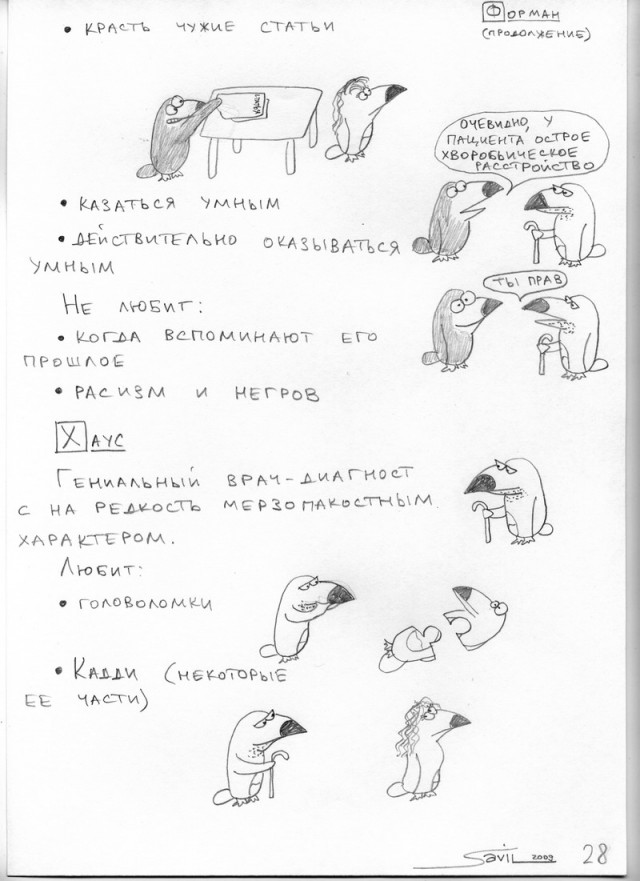 Форман
(продолжение)
• красть чужие статьи
Очевидно, у
пациента острое
хворобьическое
расстройство
• казаться умным
• действительно оказываться
умным
Ты прав
Не любит:
• когда вспоминают его
прошлое
• расизм и негров
Хаус
Гениальный врач-диагност
с на редкость мерзопакостным
характером.
Любит:
• головоломки
• Кадди (некоторые
ее части)
Savil 2009
28